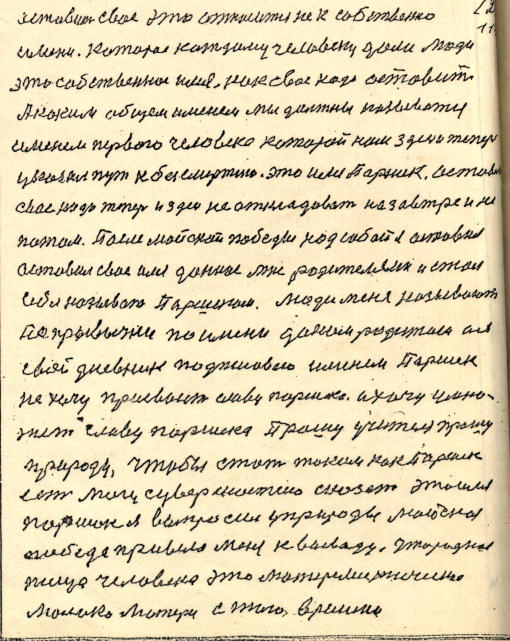 оставит свое это относится не к собственно
имени. Которое каждому человеку дали люди
это собственное имя, как свое надо оставит
А каким общем именем мы должны называтц
именем первого человека которой нам здеи тепер
указал пут к безсмертию. это имя Паршек, остави
свое надо тепер издеи не откладоват на завтре и не
потом. После майской победы над собой я оставил
оставил свое имя данное мне родителями и стал
себя называт Паршеком. люди меня называют
По привычки по имени даном родители а я
свой дневник подписоваю именем Паршек
не хочу присвоит славу паршека. а хочу умно-
жит славу паршека Прошу учителя прошу
природу, чтобы стат таким как Паршек
ест могу суверностию сказат это имя
паршек я вапросил у природы майская
победа привела меня к выводу, что родная
пища человека это материлистичено
молоко матери с того, времени